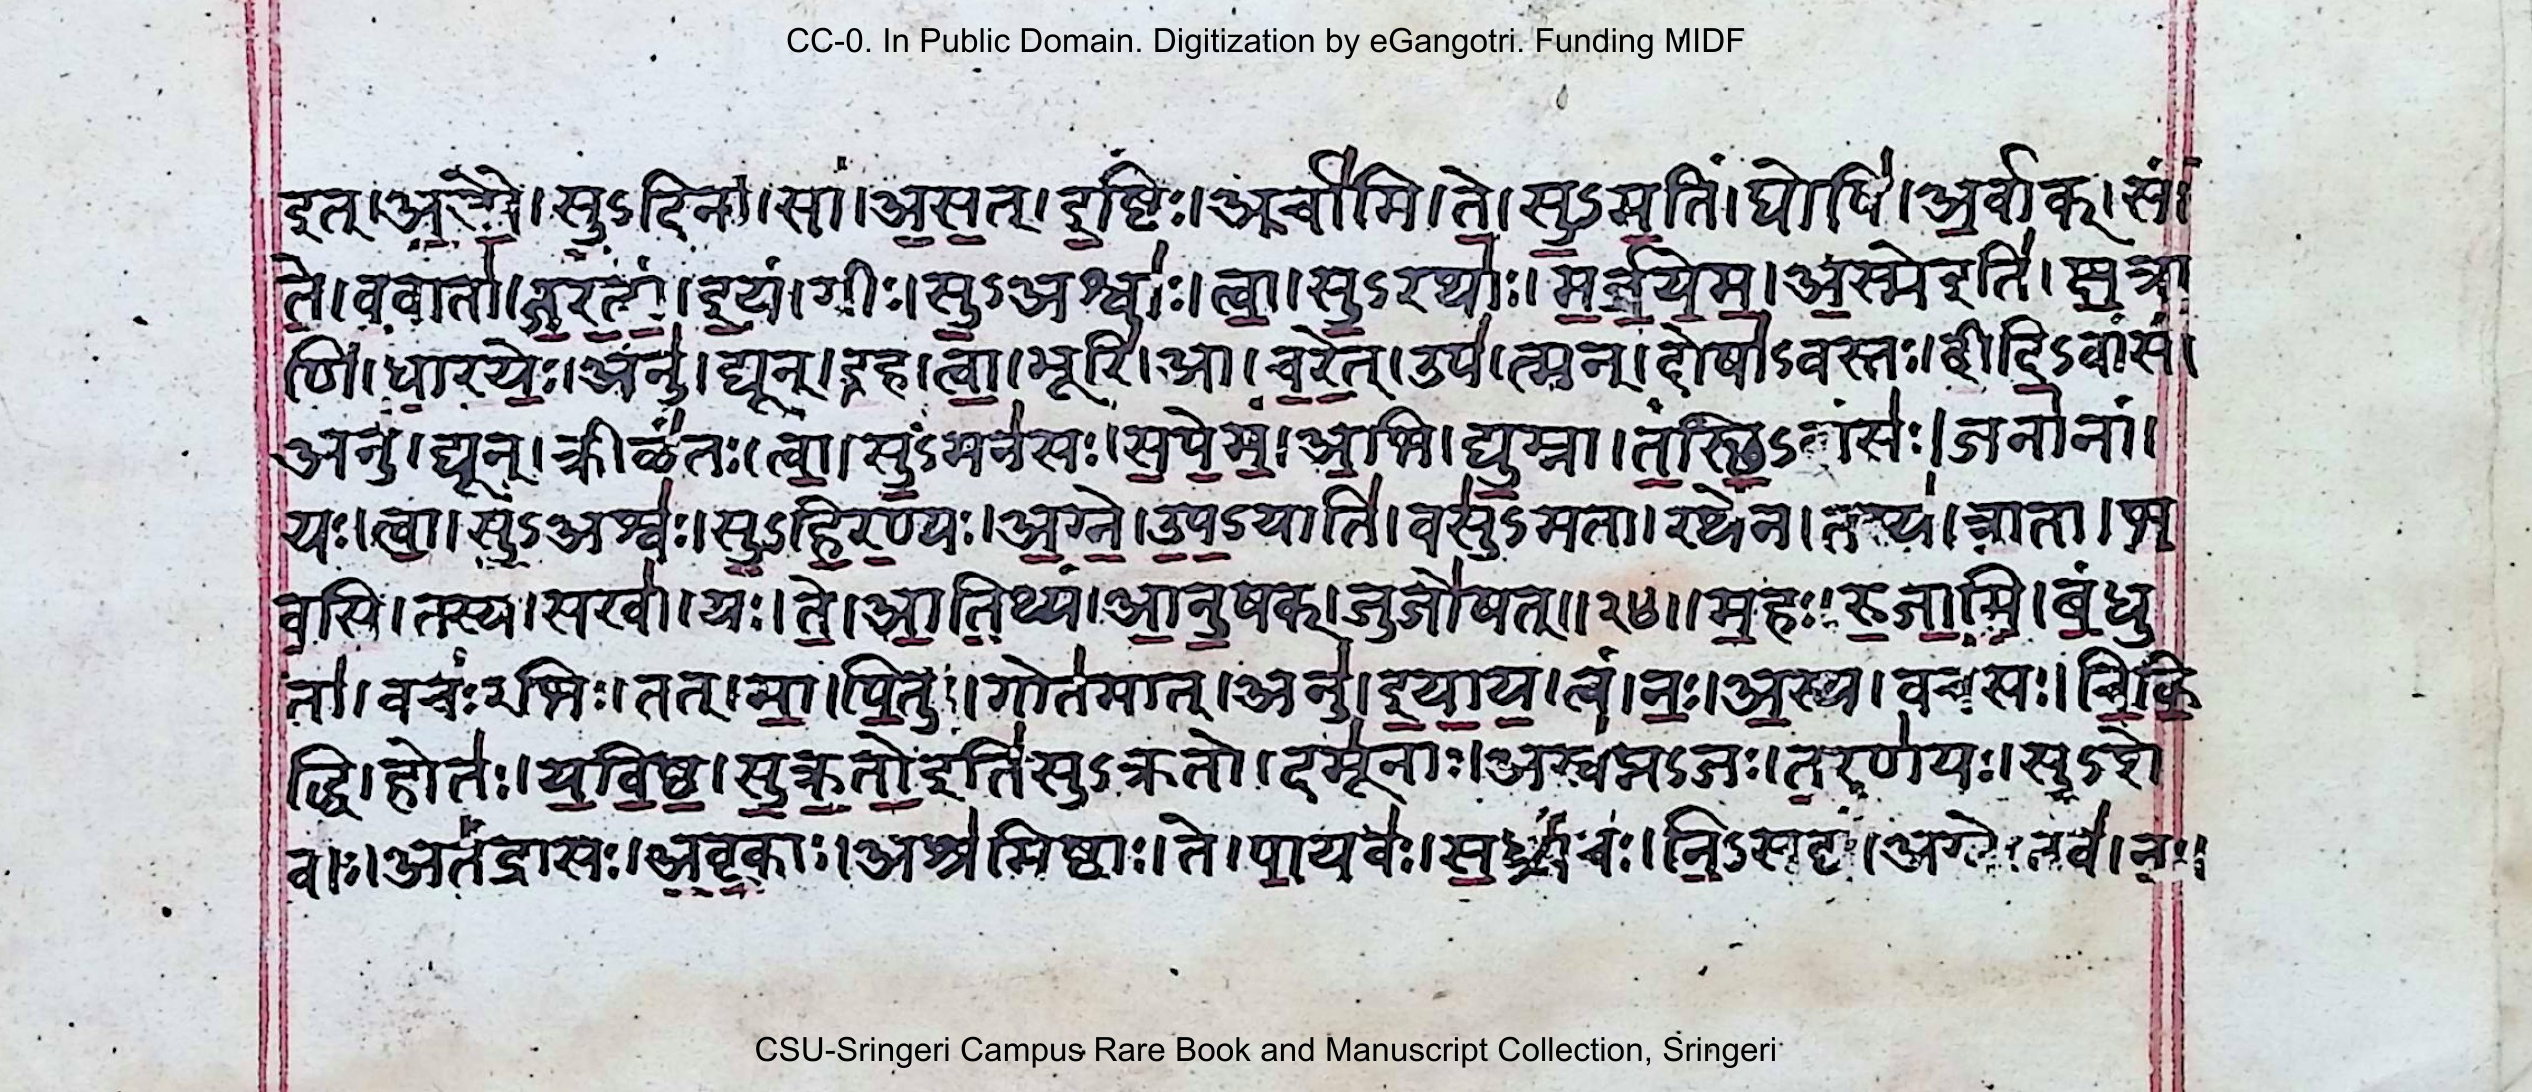 CC-0. In Public Domain. Digitization by eGangotri. Funding MIDF
इत्।अ॒स्मै॒।सु॒ऽदिना॑।सा।अ॒स॒त्।इ॒ष्टिः।अर्चा॑मि।ते॒।सु॒ऽम॒तिं।घोषि॑।अ॒र्वाक्।सं।
ते॒।व॒वाता॑।ज॒र॒तां॒।इ॒यं।गीः।सु॒ऽअश्वाः॑।त्वा॒।सु॒ऽरथाः॑।म॒र्ज॒ये॒म॒।अ॒स्मेइति॑।क्ष॒त्रा
णि॑।धा॒र॒येः॒।अनु॑।द्यून्।इ॒ह।त्वा॒।भूरि॑।आ।च॒रे॒त्।उप॑।त्मन्।दोषा॑ऽवस्तः।दी॒दि॒ऽवांसं॑।
अनु॑।द्यून्।क्रीळ॑तः।त्वा॒।सु॒ऽमन॑सः।स॒पे॒म॒।अ॒भि।द्यु॒म्ना।त॒स्थि॒ऽवांसः॑।जना॑नां।
यः।त्वा॒।सु॒ऽअश्वः॑।सु॒ऽहि॒र॒ण्यः।अ॒ग्ने॒।उ॒प॒ऽयाति॑।वसु॑ऽमता।रथे॑न।तस्य॑।त्राता।भ॒
व॒सि॒।तस्य॑।सखा॑।यः।ते॒।आ॒ति॒थ्यं।आ॒नु॒षक्।जुजो॑षत्॥२४॥म॒हः।रु॒जा॒मि॒।बं॒धु
ता॑।वचः॑ऽभिः।तत्।मा॒।पि॒तुः।गोत॑मात्।अनु॑।इ॒या॒य॒।त्वं।नः॒।अ॒स्य।वच॑सः।चि॒कि॒
द्धि॒।होतः॑।य॒वि॒ष्ठ॒।सु॒क्र॒तो॒इति॑सुऽक्रतो।दमू॑नाः।अस्व॑प्नऽजः।त॒रण॑यः।सु॒ऽशे
वाः॑।अतं॑द्रासः।अ॒वृ॒काः।अश्र॑मिष्ठाः।ते।पा॒यवः॑।स॒ध्र्यं॑चः।नि॒ऽसद्य॑।अग्ने॑।तव॑।नः॒।
CSU-Sringeri Campus Rare Book and Manuscript Collection, Sringeri